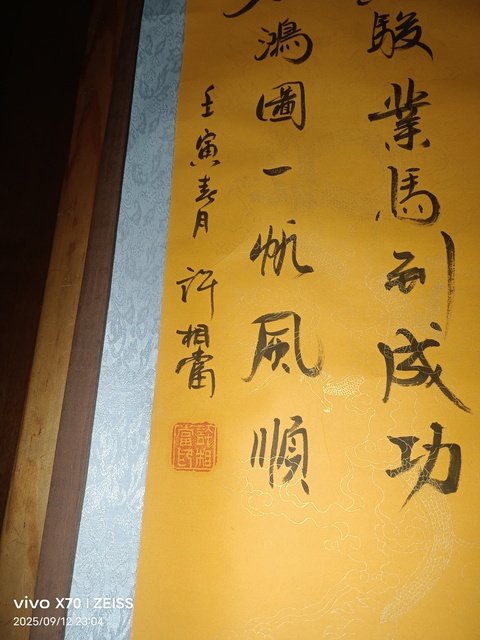 駿業馬到成功
鴻圖一帆風順
壬寅春月 許相當
許相當印
vivo X70 | ZEISS
2025/09/12 23:04